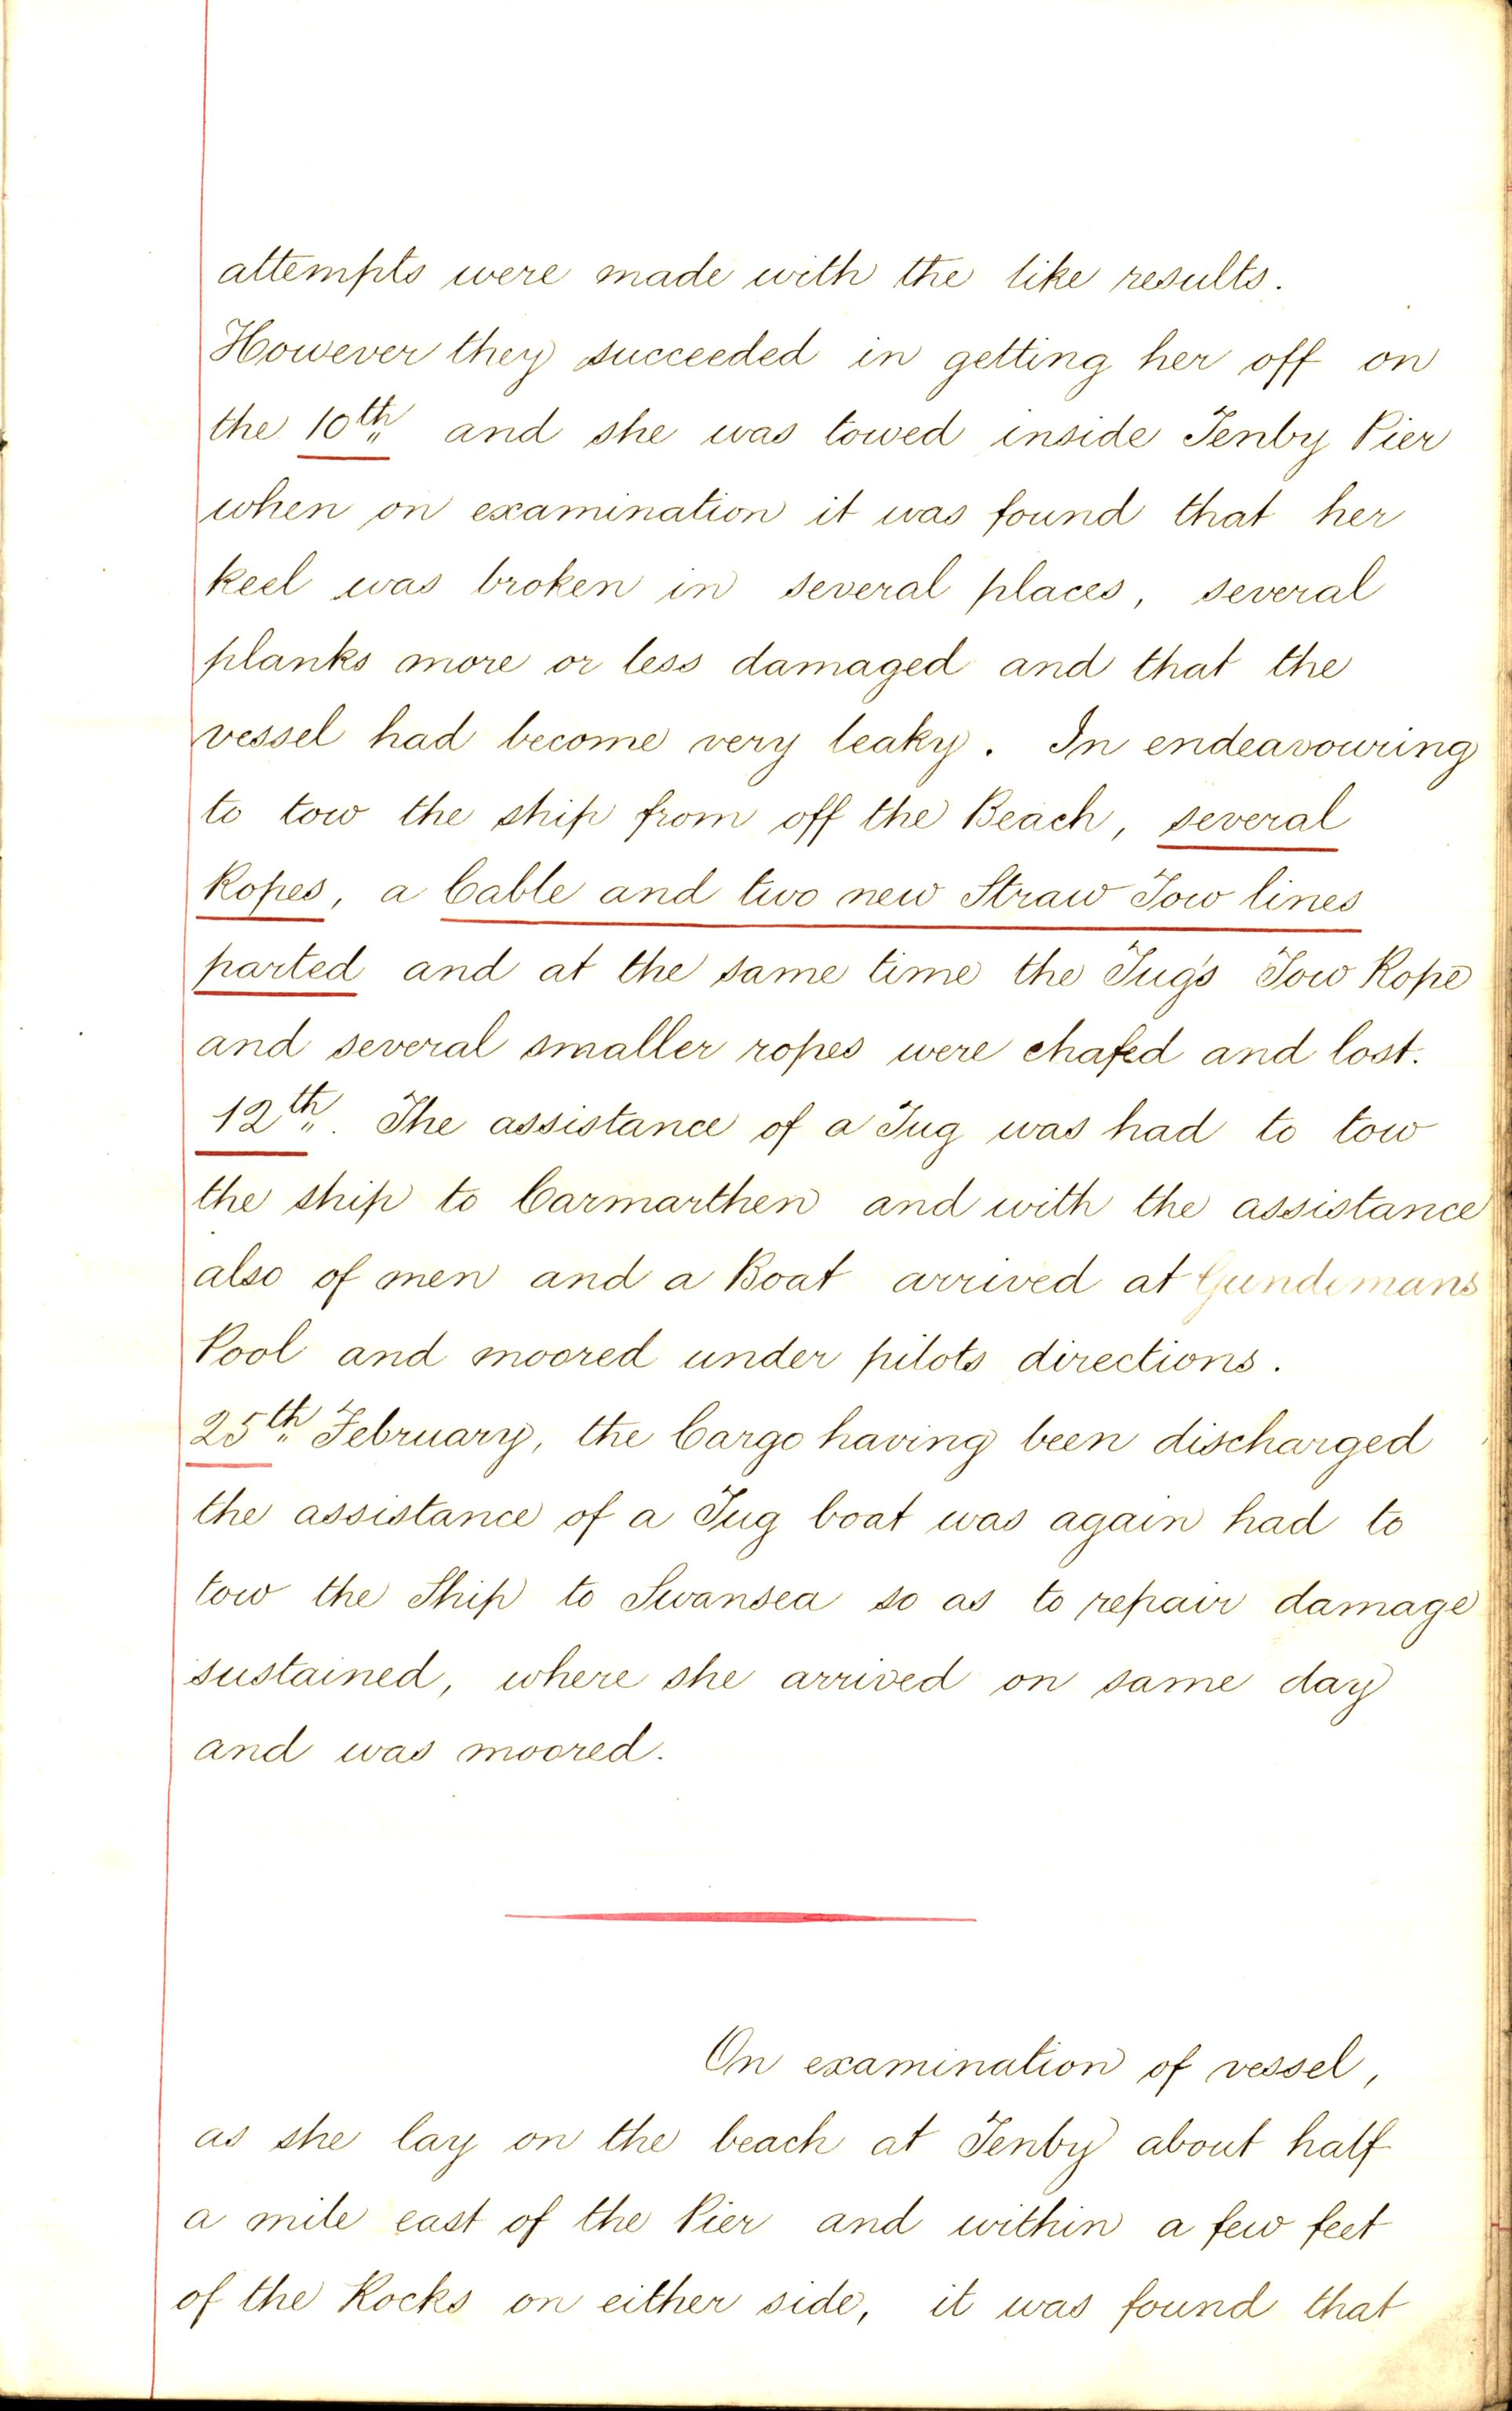 attempts were made with the like results.
However they succeeded in getting her off on
the 10th and she was towed inside Tenby Pier
when on examination it was found that her
keel was broken in several places, several
planks more or less damaged and that the
vessel had become very leaky. In endeavouring
to tow the ship from off the Beach, several
Ropes, a Cable and two new Straw Tow lines
parted and at the same time the Tug's Tow Rope
and several smaller ropes were chafed and lost.
12th. The assistance of a Tug was had to tow
the ship to Carmarthen and with the assistance
also of men and a Boat arrived at Gundemans
Pool and moored under pilots directions.
25th February, the Cargo having been discharged
the assistance of a Tug boat was again had to
tow the Ship to Swansea so as to repair damage
sustained, where she arrived on same day
and was moored.
On examination of vessel,
as she lay on the beach at Tenby about half
a mile east of the Pier and within a few feet
of the Rocks on either side, it was found that